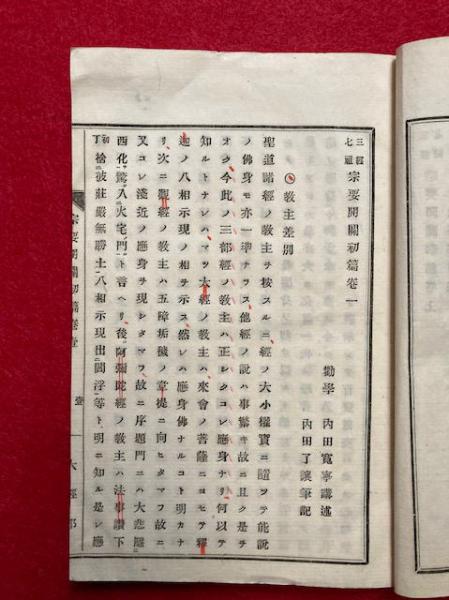 三經七祖 宗要開關初篇卷一
勸學 內田寬寧講述
內田了讓筆記
○教主差別
聖道諸經ノ教主ヲ按スルニ經ノ大小權實ニ隨ツテ能說
ノ佛身モ亦一準ナラス他經ノ說ハ事繁キ故ニ且ク是ヲ
オク今此ノ三部經ノ教主ハ正シクコレ應身ナリ何以テ
知ルトナレハマツ大經ノ教主ハ來會ノ菩薩ニヨセテ釋
迦ノ八相示現ノ相ヲ示ス然レハ應身佛ナルコト明カナ
リ次ニ觀經ノ教主ハ五障垢穢ノ韋提ニ向ヒタマフ故ニ
又コレ淺近ノ應身ヲ現シタマフ故ニ序題門ニハ大悲隱
西化驚入火宅門ト善ヘリ後阿彌陀經ノ教主ハ法事讚下
初丁 捨彼莊嚴無勝土八相示現出閻浮等ト明ニ知ル是レ應
宗要開關初篇卷壹
壹
大經部